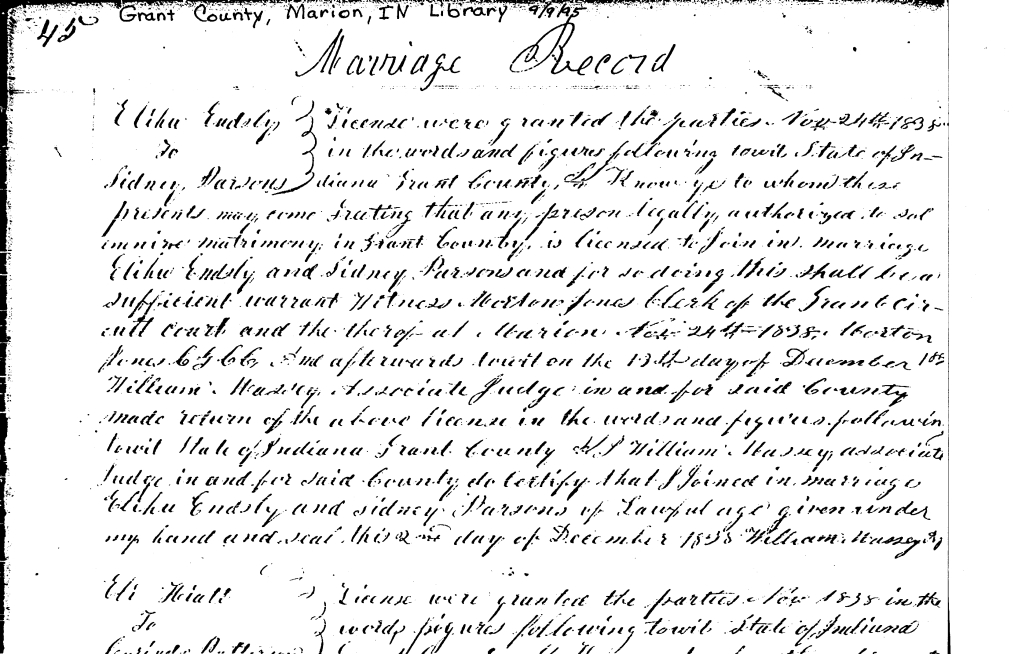 45
Grant County, Marion, IN Library 9/9/95
Marriage Record
Elihu Endsly } License were granted the parties Nov 24th 1838
To } in the words and figures following towit State of In-
Sidney Parsons } diana Grant County, SS Know ye to whom these
presents may come Greeting that any preson legally authorized to sol
emnire matrimony in Grant County is licensed to Join in marriage
Elihu Endsly and Sidney Parsons and for so doing this shall be a
sufficient warrant Witness Morton Jones Clerk of the Grant Cir-
cuit court and the therof at Marion Nov 24th 1838 Morton
Jones C G CC And afterwards towit on the 13th day of December 183
William Massey Associate Judge in and for said County
made return of the above license in the words and figures following
towit State of Indiana Grant County SS I William Massey, associate
Judge in and for said County do Certify that I Joined in marriage
Elihu Endsly and Sidney Parsons of Lawful age given under
my hand and seal this 2nd day of December 1838 William Massey
Eli Hiatt } License were granted the parties Nov 1838 in the
To } words figures following towit State of Indiana